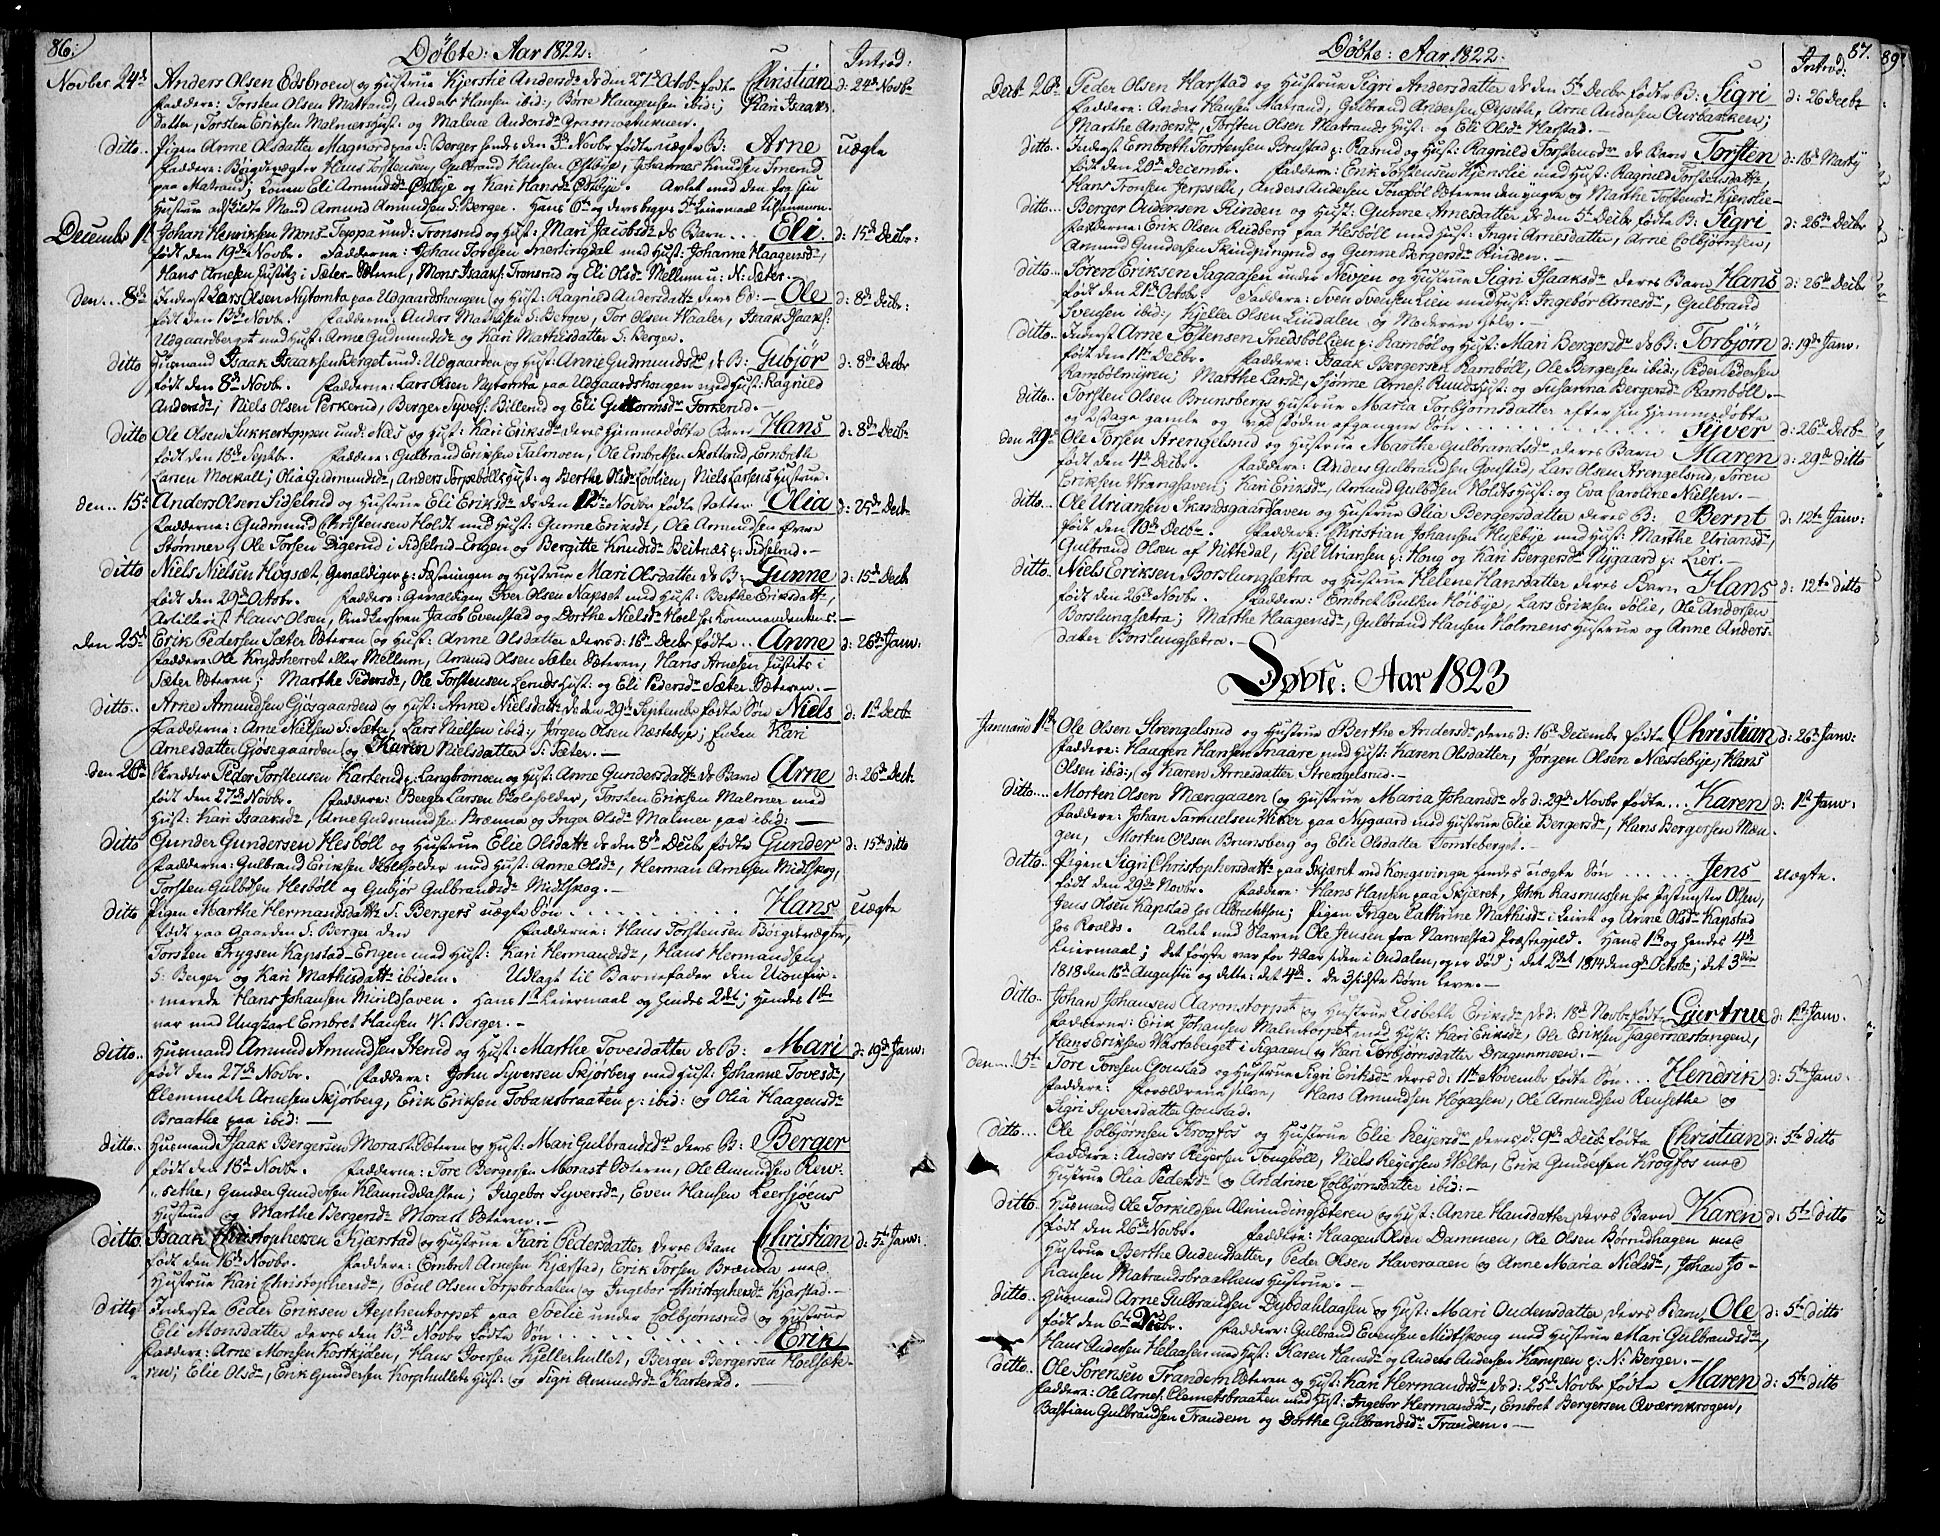 86.
Döbte: Aar 1822.
Introd:
Novber 24d Anders Olsen Edsbroen og Hustrue Kjerstie Andersdr ds den 27d Octobr fødte Christian d: 24d Novbr
Faddere: Torsten Olsen Matrand, Anders Hansen ibid:, Børre Haagensen ibid:; Kari Isaaks-
datter, Torsten Eriksen Malmers Hust: og Malene Andersdr
ditto.. Pigen Anne Olsdatter Magnord paa S: Berger hendes den 3d Novbr fødte uægte B: Arne uægte
Faddere: Bøigdevægter Hans Torstensen, Gulbrand Hansen Østbye, Johannes Knudsen
paa Matrand; Konen Eli Amundsdr Østbye og Kari Hansdr Østbye. Avlet med den fra sin
Hustrue adskildte Mand Amund Amundsen S: Berger. Hans 6te og deres begges 5te Leiermaal tilsammen.
Decembr 1t Johan Henriksen Mons-Teppa und: Tronsrud og Hust: Mari Jacobsdr ds Barn .. Eli d: 15d Decbr
født den 19d Novbr. Faddere: Johan Toresen med Hust: Johanne Haagensdr,
Hans Arnesen Justitz i Sæter-Sæteren, Mons Isaaks: Tronsrud og Eli Olsdr Mellum u: N: Sæter.
den .. 8d Inderst Lars Olsen Nytomta paa Udgaardshougen og Hust: Ragnild Andersdattr deres B: - Ole d: 8d Decbr:
født den 13d Novbr. Faddere: Anders Madissen S: Berger, Tor Olsen Waaler, Isaak Isaaks:
Udgaardberget med Hust: Anne Gudmundsdr og Kari Mathisdatter S: Berger.
ditto Husmand Isaak Isaaksen Berget und: Udgaarden og Hust: Anne Gudmundsdr ds B: Gubjør d: 8d Decbr
født den 8d Novbr. Fadderne: Lars Olsen Nytomta paa Udgaardshougen med Hust: Ragnild
Andersdr; Niels Olsen Perkerud, Berger Syvers: Billerud og Eli Guttormsdr Torkerud.
ditto Ole Olsen Sukkertoppen und: Næs og Hust: Kari Eriksdr deres Hjemmedøbte Barn Hans d: 8d Decbr
født den 18d Septbr. Faddere: Gulbrand Eriksen Salmoen, Ole Embretsen Skotterud, Embreth
Larsen Mockall; Olia Gudmundsdr, Anders Torpebølls Hust: og Berthe Olsdr Lovlien, Niels Larsens Hustrue.
den .. 15d Anders Olsen Sidselrud og Hustrue Eli Eriksdr ds den 12te Novbr fødte Datter Olia d: 25d Decbr
Fadderne: Gudmund Christensen Holdt med Hust: Gunne Eriksdr, Ole Amundsen Øvre
Strømner, Ole Torsen Digerud i Sidselrud-Engen og Bergitte Knudsdr Beitnæs p: Sidselrud.
ditto Niels Nielsen Høgsæt, Gevaldiger p: Fæstningen og Hustrue Mari Olsdatter ds B: Gunne d: 15d Decbr
født den 29d Octobr. Faddere: Gevaldigen Iver Olsen Napset med Hust: Berthe Eriksdattr,
Artillerist Hans Olsen, Jacob Evenstad og Dorthe Nielsdr Hoel hos Kommendanten.
den 25d Erik Pedersen Sæter Sæteren og Hust: Anne Olsdatter deres d: 16d Decbr fødte .. Anne d: 26d Janv:
Faddere: Ole Krydsherret eller Mellum, Amund Olsen Sæter Sæteren, Hans Arnesen Justits i
Sæter Sæteren; Marthe Pedersdr, Ole Torstensen Lerruds Hust: og Eli Pedersdr Sæter Sæteren.
ditto.. Arne Amundsen Gjøsgaarden og Hust: Anne Nielsdattr ds den 29d Septembr fødte Søn Niels d: 1t Decbr
Fadderne: Arne Nielsen S: Sæter, Lars Nielsen ibid: Jørgen Olsen Næstebye; Enken Kari
Arnesdatter Gjøsegaarden og Karen Nielsdatter S: Sæter.
den 26d Skredder Peder Torstensen Karterud p: Langbromoen og Hust: Anne Gundersdattr ds Barn Arne d: 26d Decbr
født den 27d Novbr. Faddere: Berger Larsen Skoleholder, Torsten Eriksen Malmer med
Hust: Kari Isaaksdr, Arne Gudmundsen Brænna og Inger Olsdr Malmer paa ibid:
ditto Gunder Gundersen Hesbøll og Hustrue Elie Olsdattr ds den 8d Decbr fødte Gunder d: 15d ditto
Fadderne: Gulbrand Eriksen Skoleholder med Hust: Anne Olsdr, Herman Arnesen Midtskog,
Torsten Gulbdsen Hesbøll og Gubjør Gulbrandsdr Midtskog.
ditto Pigen Marthe Hermandsdattr S: Bergers uægte Søn . . . . . . . . Hans uægte
født paa Gaarden S: Berger den Fadderne: Hans Torstensen Bøigdevægter,
Torsten Trygsen Kapstad-Engen med Hust: Kari Hermandsdr, Hans Hermandsen
S: Berger og Kari Mathisdattr ibidem. Udlagt til Barnefader den Uconfir-
merede Hans Johansen Mirildhaven. Hans 1te Leiermaal og hendes 2det; hendes 1te
var med Ungkarl Embret Hansen W: Berger.
ditto.. Husmand Amund Amundsen Herud og Hust: Marthe Tovesdatter ds B: Mari d: 19d Janv:
født den 27d Novbr. Faddere: John Syversen Skjørberg med Hust: Johanne Tovesdr,
Clemmeth Arnesen Skjørberg, Erik Eriksen Tobaksbraaten p: ibid: og Olia Haagensdr
Braathe paa ibid:
ditto. Husmand Isaak Bergersen Morast-Sæteren og Hust: Mari Gulbrandsdr deres B: Berger
født den 18d Novbr. Fadderne: Tore Bergersen Morast Sæteren, Ole Amundsen Rew-
sethe, Gunder Gundersen; Ingebor Syversdr, Even Hansen Leersjøens
Hustrue og Marthe Bergersdr Morast Sæteren.
ditto.. Isaak Christophersen Kjærstad og Hustrue Kari Pedersdatter deres Barn Christian d: 5te Janv:
født den 16d Novbr. Faddere: Embret Arnesen Kjærstad, Erik Torsen Brænna med
Hustrue Kari Christophersdr, Poul Olsen Torpsbraaten og Ingebor Christophersdr Kjærstad.
ditto. Inderste Peder Eriksen Stephentorpet paa Svelie under Colbjørnsrud og Hustrue
Eli Monsdatter deres den 13d Novbr fødte Søn . . . . . . . Erik
Faddere: Arne Monsen Kostkjølen, Hans Iversen Kjellerhullet, Berger Bergersen
Elie Olsdr, Erik Gundersen Korphullets Hust: og Sigri Amundsdr Karterud.
Döbte: Aar 1822.
Introd:
87.
89
Decbr 26d Peder Olsen Harstad og Hustrue Sigri Andersdatter ds den 5te Decbr fødte B: Sigri d: 26 Decbr
Faddere: Anders Hansen Matrand, Gulbrand Andersen, Arne Andersen Aurbakken;
Marthe Andersdr, Torsten Olsen Matrands Hust: og Eli Olsdr Harstad.
ditto. Inderst Embreth Torstensen Brustad p: Rasrud og Hust: Ragnild Torstensdr ds Barn Torsten d: 16d Martij
født den 20d Decembr. Faddere: Erik Torstensen Hjenslie med Hust: Ragnild Torstensdattr
Hans Tronsen Jerpsell, Anders Andersen Torpbøl Sæteren den yngre og Marthe Torstensdr Hjenslie.
ditto.. Berger Oudensen Rinden og Hust: Gunne Arnesdatter ds den 5te Decbr fødte B: Sigri d: 26d Decbr
Fadderne: Erik Olsen Rudberg paa Hesböll med Hust: Ingri Arnesdatter, Arne Colbjørnsen,
Amund Gundersen Skindpungrud og Gunne Bergersdr Rinden.
ditto.. Sören Eriksen Sagaasen under Nevjen og Hustrue Sigri Isaaksdr deres Barn Hans d: 26d Decbr
født den 21d Octobr. Faddere: Sven Svensen Lien med Hust: Ingebor Arnesdr, Gulbrand
Svensen ibid:, Kjelle Olsen Lindalen og Moderen selv.
ditto.. Inderst Arne Tostensen Snedsbölien p: Ramböl og Hust: Mari Bergersdr ds B: Torbjörn d: 19d Janv:
født den 11te Decbr. Faddere: Isaak Bergersen Ramböll, Ole Bergersen ibid:, Peder Pedersen
Rambölmyren; Marthe Larsdr, Sjønne Arnes: Ruuds Hust: og Susanna Bergersdr Ramböll.
ditto.. Torsten Olsen Brunsbergs Hustrue Maria Torbjørnsdatter efter sin Hjemmedøbte
og 2 Dage gamle og ved Døden afgangne Søn . . . . . . . . Syver d: 26d Decbr
den 29d Ole Torsen Strengelsrud og Hustrue Marthe Gulbrandsdr deres Barn Maren d: 29d ditto
født den 4d Decbr. Faddere: Anders Gulbrandsen Goustad, Lars Olsen Strengelsrud, Sören
Eriksen Vranghaven; Kari Eriksdr, Amund Gulbdsen Holdts Hust: og Eva Caroline Nielsen.
ditto.. Ole Uriansen Skandsgaardhaven og Hustrue Olia Bergersdatter deres B: Bernt d: 12te Janv:
født den 10d Decbr. Faddere: Christian Johansen Husebye med Hust: Marthe Uriansdr,
Gulbrand Olsen af Nittedal, Kjel Uriansen p: Houg og Kari Bergersdr Nygaard p: Lier.
ditto Niels Eriksen Borslungsætra og Hustrue Helene Hansdatter deres Barn Hans d: 12te ditto
født den 26d Novbr. Faddere: Embret Poulsen Hoibye, Lars Eriksen Solie, Ole Andersen
Borslungsætra; Marthe Haagensdr, Gulbrand Hansen Holmens Hustrue og Anne Anders-
datter Borslungsætra.
Döbte: Aar 1823
Januarii 1te Ole Olsen Strengelsrud og Hustrue Berthe Andersdr deres d: 16d Decembr fødte Christian d: 26d Janv:
Faddere: Haagen Hansen Snaare med Hust: Karen Olsdatter, Jørgen Olsen Næstebye, Hans
Olsen ibid:, og Karen Arnesdatter Strengelsrud.
ditto.... Morten Olsen Mængaaen og Hustrue Maria Johansdr ds d: 29d Novbr fødte .. Karen d: 1te Janv:
Faddere: Johan Samuelsen Wiker paa Nygaard med Hustrue Elie Bergersdr, Hans Bergersen Mæn-
gen, Morten Olsen Brunsberg og Elie Olsdatter Tomteberget.
ditto.. Pigen Sigri Christophersdattr paa Skjæret ved Kongsvinger hendes uægte Søn ..... Jens uægte.
født den 29d Novbr. Faddere: Hans Hansen paa Skjæret, John Rasmussen hos Postmester Olsen,
Jens Olsen Kapstad hos Albrechtson; Pigen Inger Cathrine Mathisdr i Leiret og Anne Olsdr Kapstad
hos Roalds. Avlet med Slaven Ole Jensen fra Nannestad Præstegjeld. Hans 1te og hendes 4de
Leiermaal; det første var for 4 Aar siden i Oudalen, og er død; det 2det 1814 den 9d Octobr; det 3die
1818 den 16d Augustii og dette: det 4de. De 3 sidste Børn leve.
ditto.. Johan Johansen Aaronstorpet og Hustrue Lisbeth Eriksdr ds d: 18d Novbr fødte Gjertrue d: 1te Janv:
Fadderne: Erik Johansen Malmtorpet med Hust: Kari Eriksdr, Ole Eriksen Fagernæstangen,
Hans Eriksen Wastaberget i Sigaaen og Kari Torbjørnsdatter Dragonmoen.
den .. 5te Tore Toresen Goustad og Hustrue Sigri Eriksdr deres d: 11te Novembr fødte Søn ... Hendrik d: 5te Janv.
Faddere: Forældrene selve, Hans Amundsen Høgaasen, Ole Amundsen Reusethe og
Sigri Syversdatter Goustad.
ditto.. Ole Colbjørnsen Krogfos og Hustrue Elie Reiersdr deres d: 9d Decbr fødte Christian d: 5te ditto
Faddere: Anders Reyersen Tougböll, Niels Reyersen Wælta, Erik Gundersen Krogfos med
Hustrue Olia Pedersdr og Andrine Colbjørnsdatter ibid:
ditto. Husmand Ole Torkildsen Almindingsæteren og Hust: Anne Hansdatter, deres Barn Karen d: 5te ditto
født den 26d Novbr. Faddere: Haagen Olsen Dammen, Ole Olsen Børrudhagen med
Hustrue Berthe Oudensdatter, Peder Olsen Haveraaen og Anne Maria Nielsdr, Johan Jo-
hansen Matrandsbraathens Hustrue.
ditto.. Husmand Arne Gulbrandsen Dybdahlaasen og Hust: Mari Oudensdatter deres Barn Ole d: 5te ditto
født den 6te Decbr. Faddere: Gulbrand Evensen Midtskoug med Hustrue Mari Gulbrandsdr,
Hans Andersen Helaasen med Hust: Karen Hansdr og Anders Andersen Kampen p: N: Berger.
ditto. Ole Sørensen Trandem Sæteren og Hust: Kari Hermandsdr ds d: 25d Novbr fødte Maren d: 5te ditto
Faddere: Ole Arnes: Clemetsbraaten med Hust: Ingebor Hermandsdr, Embret Bergersen Qværnkrogen,
Bastian Gulbrandsen Trandem og Dorthe Gulbrandsdr Trandem.